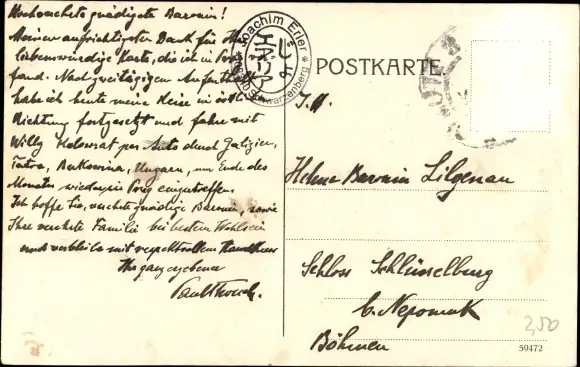 Hochverehrte gnädigste Baronin!
Meinen aufrichtigsten Dank für Ihre
liebenswürdige Karte, die ich in Prag
fand. Nach zweitägigem Aufenthalt
habe ich heute meine Reise in östl.
Richtung fortgesetzt und fahre mit
Willy Kolowrat per Auto durch Galizien,
Tatra, Bukowina, Ungarn, um Ende des
Monates wieder in Prag einzutreffen.
Ich hoffe Sie, verehrte gnädige Baronin, sowie
Ihre verehrte Familie bei bestem Wohlsein
und verbleibe mit respektvollem Handkuss
Ihr ganz ergebener
Joachim Erler
Schwarzenberg
POSTKARTE.
I. H.
Helene Baronin Lilgenau
Schloss Schlüsselburg
b. Nepomuk
Böhmen
2,50
59472